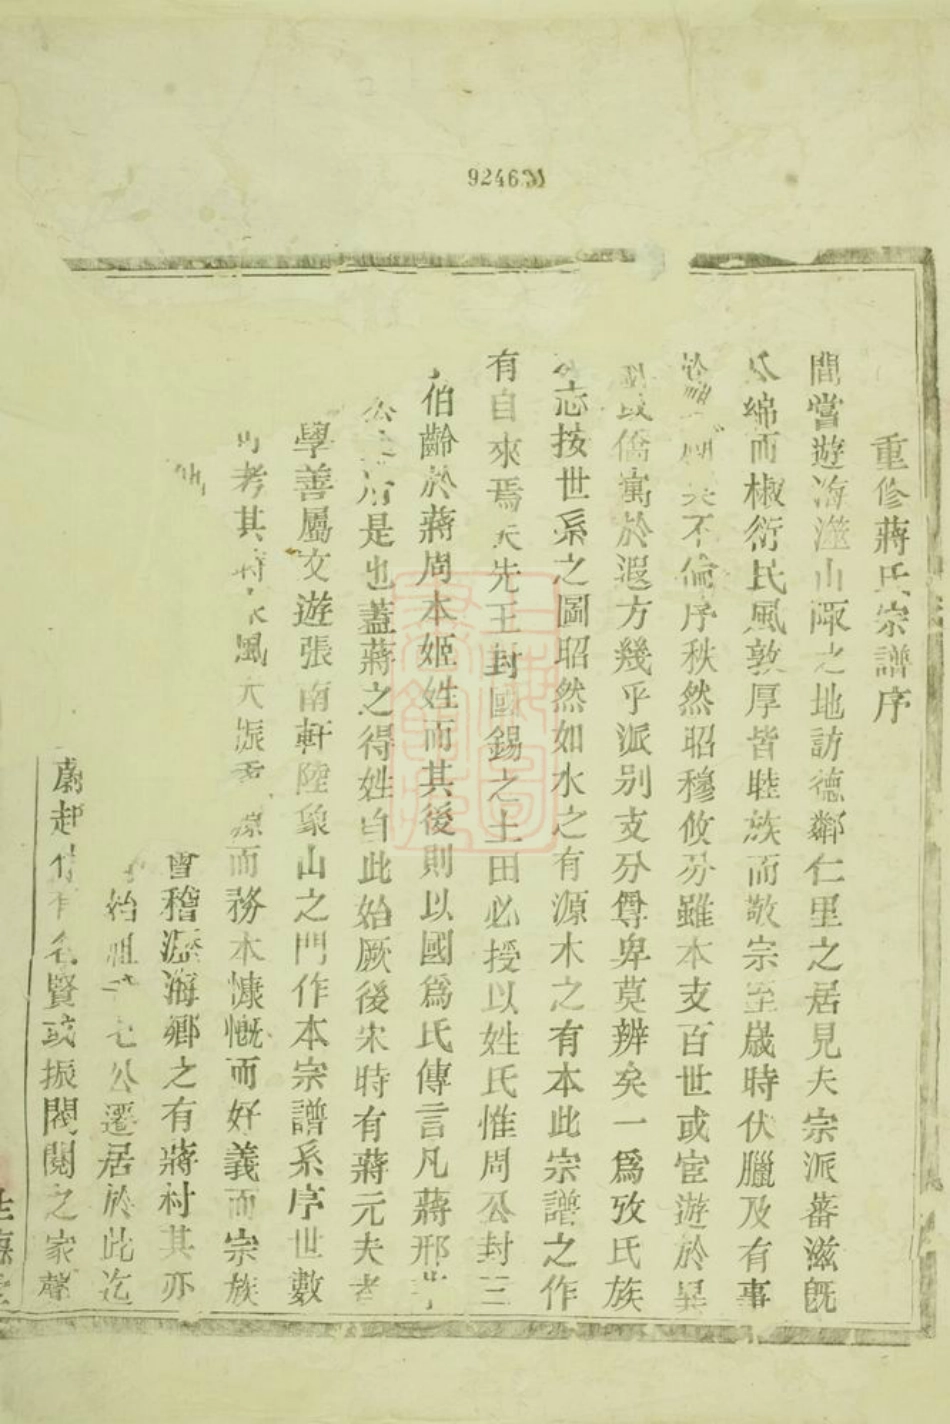 924631
重修蔣氏宗譜序
間嘗遊海澨山陬之地訪德鄰仁里之居見夫宗派蕃滋旣
瓜綿而椒衍民風敦厚皆睦族而敬宗至歲時伏臘及有事
不倫序秩然昭穆攸分雖本支百世或宦遊於異
或僑寓於遐方幾乎派别支分尊卑莫辨矣一爲攷氏族
志按世系之圖昭然如水之有源木之有本此宗譜之作
有自來焉夫先王封國錫之土田必授以姓氏惟周公封三
伯齡於蔣周本姬姓而其後則以國爲氏傳言凡蔣邢
公之胤是也蓋蔣之得姓自此始厥後宋時有蔣元夫者
學善屬文遊張南軒陸象山之門作本宗譜系序世數
可考其家風大振而務本慷慨而好義而宗族
會稽瀝海鄉之有蔣村其亦
始祖公遷居於此迄
蔚起代有名賢或振閥閱之家聲